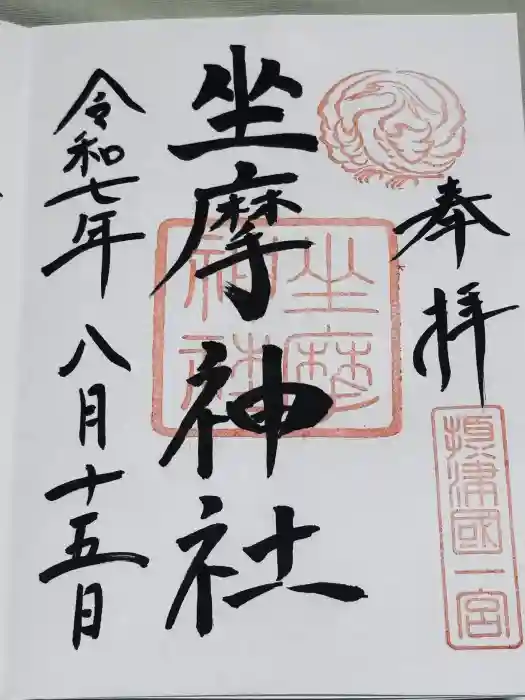 奉拝
摂津國一宮
坐摩神社
坐摩神社
令和七年八月十五日